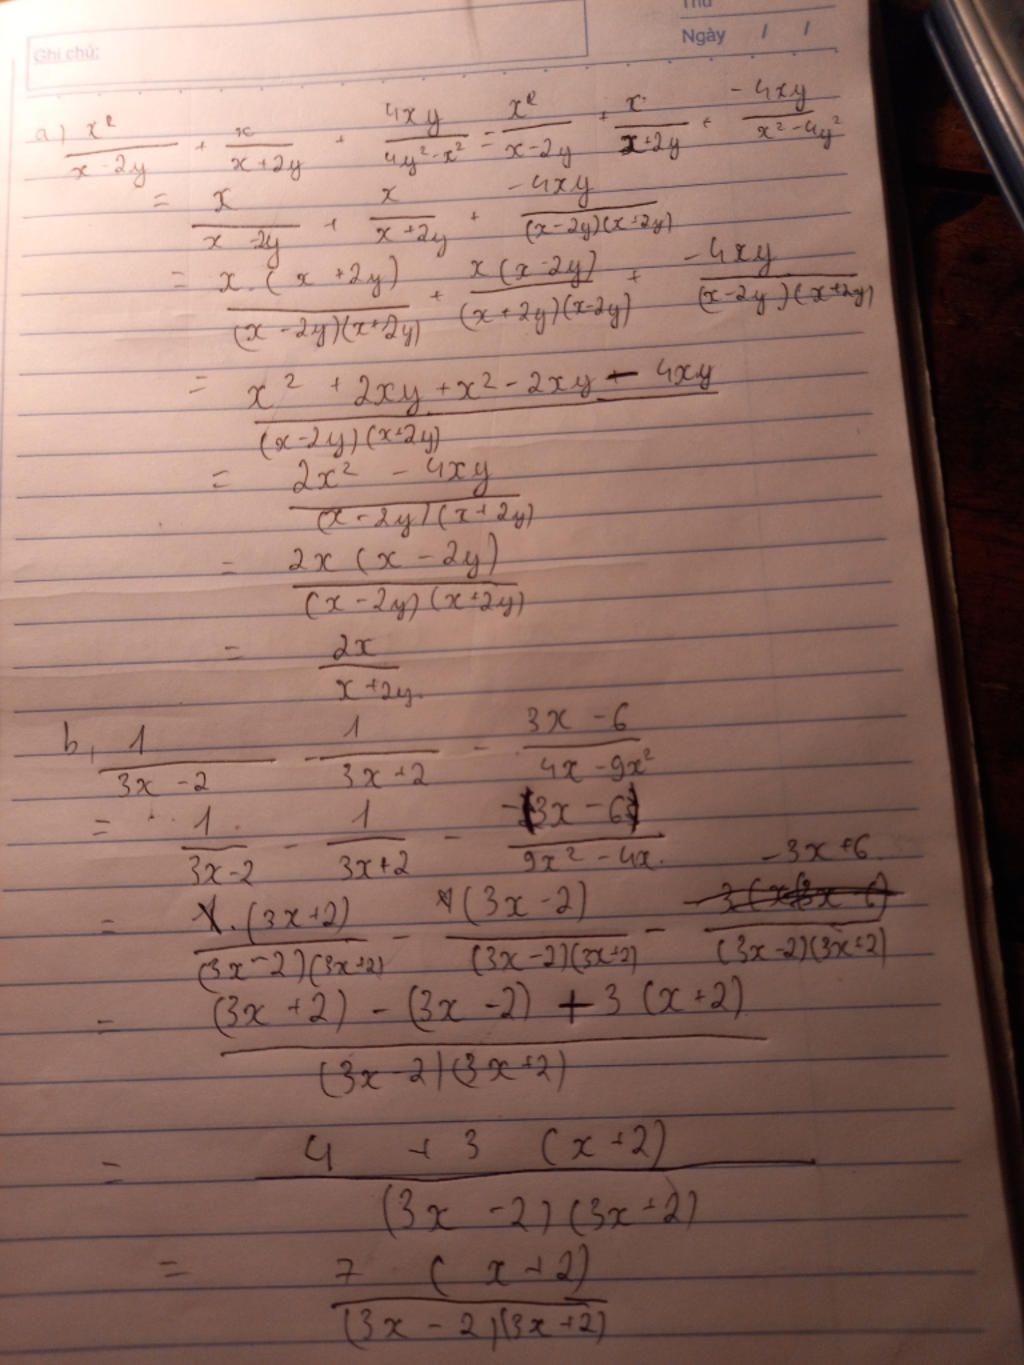 Thứ
Ghi chú:
Ngày / /
a) x² / (x - 2y) + x / (x + 2y) + 4xy / (4y² - x²) = x² / (x - 2y) + x / (x + 2y) + -4xy / (x² - 4y²)
= x / (x - 2y) + x / (x + 2y) + -4xy / (x - 2y)(x + 2y)
= x . (x + 2y) / (x - 2y)(x + 2y) + x (x - 2y) / (x + 2y)(x - 2y) + -4xy / (x - 2y)(x + 2y)
= x² + 2xy + x² - 2xy - 4xy / (x - 2y)(x + 2y)
= 2x² - 4xy / (x - 2y)(x + 2y)
= 2x (x - 2y) / (x - 2y)(x + 2y)
= 2x / x + 2y.
b, 1 / (3x - 2) - 1 / (3x + 2) - 3x - 6 / (4x - 9x²)
= 1 / (3x - 2) - 1 / (3x + 2) - -(3x - 6) / (9x² - 4x)
= 1 . (3x + 2) / (3x - 2)(3x + 2) - 1 (3x - 2) / (3x - 2)(3x + 2) - -3x + 6 / (3x - 2)(3x + 2)
= (3x + 2) - (3x - 2) + 3 (x + 2) / (3x - 2)(3x + 2)
= 4 + 3 (x + 2) / (3x - 2)(3x + 2)
= 7 (x + 2) / (3x - 2)(3x + 2)